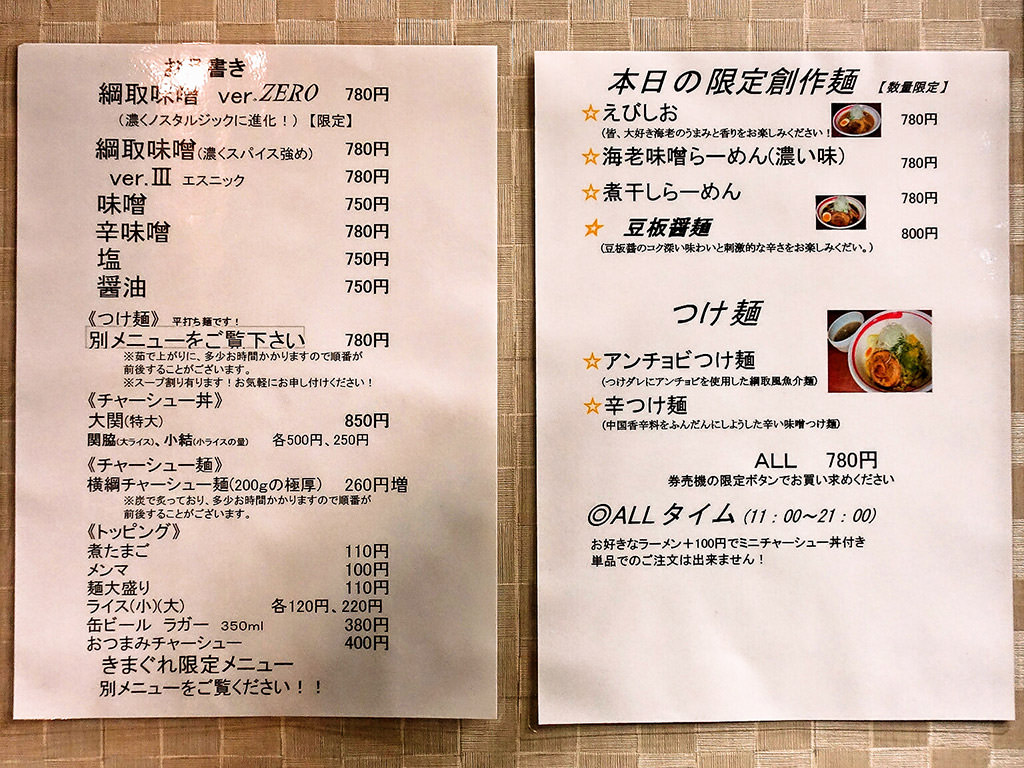 お品書き
綱取味噌 ver.ZERO 780円
(濃くノスタルジックに進化！)【限定】
綱取味噌(濃くスパイス強め) 780円
ver.Ⅲ エスニック 780円
味噌 750円
辛味噌 780円
塩 750円
醤油 750円
《つけ麺》 平打ち麺です！
別メニューをご覧下さい 780円
※茹で上がりに、多少お時間かかりますので順番が
前後することがございます。
※スープ割り有ります！お気軽にお申し付けください！
《チャーシュー丼》
大関(特大) 850円
関脇(大ライス)、小結(小ライスの量) 各500円、250円
《チャーシュー麺》
横綱チャーシュー麺(200gの極厚) 260円増
※炭で炙っており、多少お時間かかりますので順番が
前後することがございます。
《トッピング》
煮たまご 110円
メンマ 100円
麺大盛り 110円
ライス(小)(大) 各120円、220円
缶ビール ラガー 350ml 380円
おつまみチャーシュー 400円
きまぐれ限定メニュー
別メニューをご覧ください！！
本日の限定創作麺 【数量限定】
☆えびしお 780円
(皆、大好き海老のうまみと香りをお楽しみください！
☆海老味噌らーめん(濃い味) 780円
☆煮干しらーめん 780円
☆ 豆板醤麺 800円
(豆板醤のコク深い味わいと刺激的な辛さをお楽しみくだい。)
つけ麺
☆アンチョビつけ麺
(つけダレにアンチョビを使用した綱取風魚介麺)
☆辛つけ麺
(中国香辛料をふんだんにしようした辛い味噌つけ麺)
ALL 780円
券売機の限定ボタンでお買い求めください
◎ALL タイム (11：00～21：00)
お好きなラーメン＋100円でミニチャーシュー丼付き
単品でのご注文は出来ません！